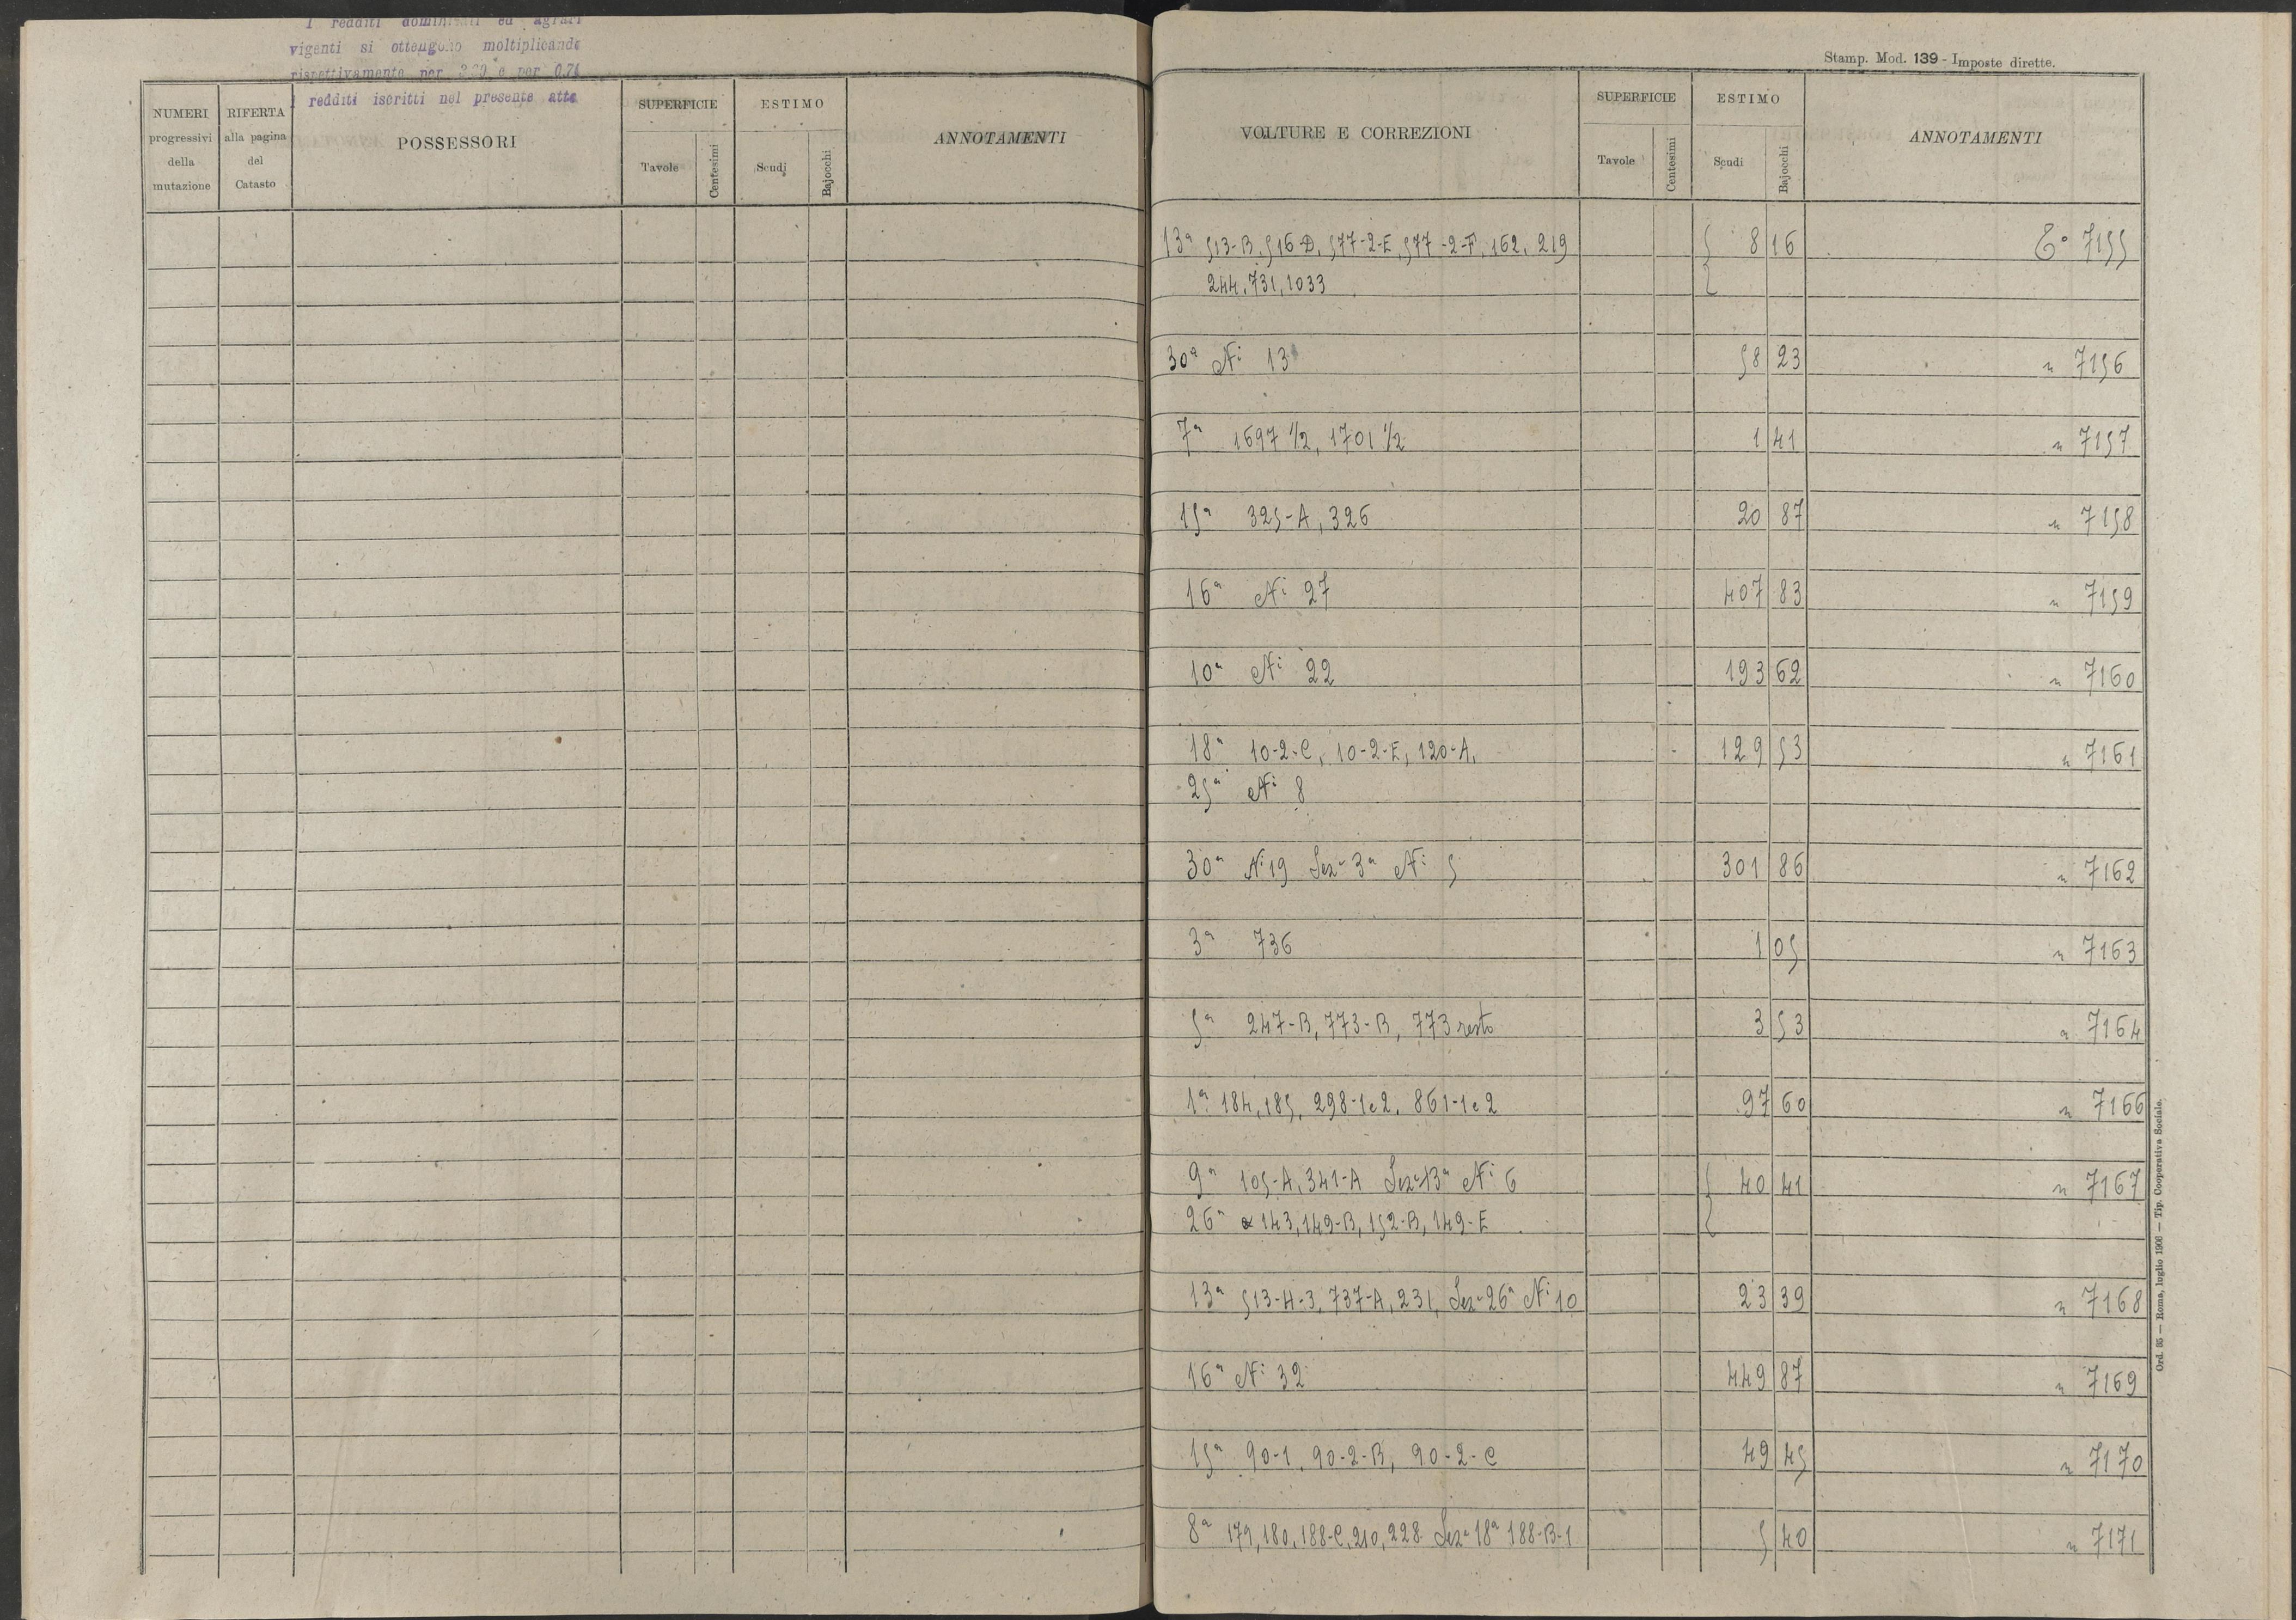 I redditi dominicali ed agrari
vigenti si ottengono moltiplicando
rispettivamente per 3.20 e per 0.74
i redditi iscritti nel presente atto
NUMERI progressivi della mutazione
RIFERTA alla pagina del Catasto
POSSESSORI
SUPERFICIE
Tavole
Centesimi
ESTIMO
Scudi
Bajocchi
ANNOTAMENTI
Stamp. Mod. 139 - Imposte dirette.
VOLTURE E CORREZIONI
SUPERFICIE
Tavole
Centesimi
ESTIMO
Scudi
Bajocchi
ANNOTAMENTI
13ª 513-B, 516-D, 577-2-E, 577-2-F, 162, 219 8 16 Cº 7155
244, 731, 1033
30ª Nⁱ 13 58 23 " 7156
7ª 1697 1/2, 1701 1/2 1 41 " 7157
15ª 325-A, 326 20 87 " 7158
16ª Nⁱ 27 407 83 " 7159
10ª Nⁱ 22 193 62 " 7160
18ª 10-2-C, 10-2-E, 120-A, 129 53 " 7161
25ª Nⁱ 8
30ª Nⁱ 19 Sezª 3ª Nⁱ 5 301 86 " 7162
3ª 736 1 05 " 7163
5ª 247-B, 773-B, 773 resto 3 53 " 7164
1ª 184, 185, 298-1e2, 861-1e2 97 60 " 7166
9ª 105-A, 341-A Sezª 13ª Nⁱ 6 40 41 " 7167
26ª 143, 149-B, 152-B, 149-E
13ª 513-H-3, 737-A, 231, Sezª 26ª Nⁱ 10 23 39 " 7168
16ª Nⁱ 32 449 87 " 7169
15ª 90-1, 90-2-B, 90-2-C 49 45 " 7170
8ª 179, 180, 188-C, 210, 228 Sezª 18ª 188-B-1 5 40 " 7171
Ord. 85 — Roma, luglio 1906 — Tip. Cooperativa Sociale.